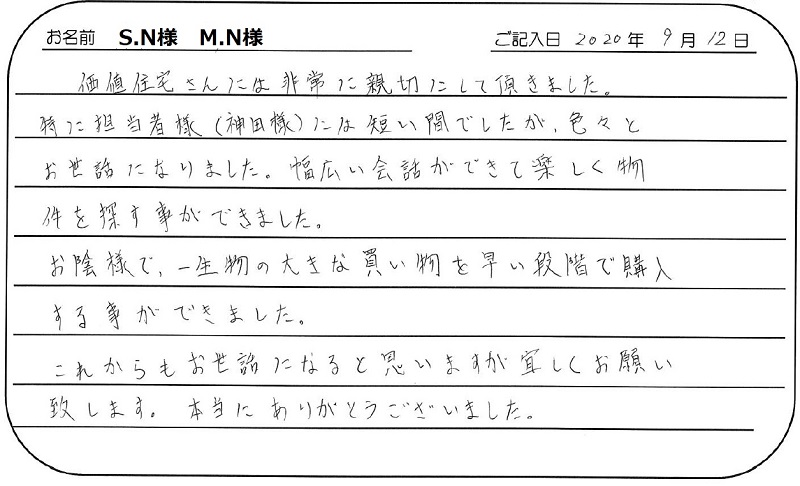 お名前 S.N様 M.N様 ご記入日 2020年 9月 12日
価値住宅さんには非常に親切にして頂きました。
特に担当者様(神田様)には短い間でしたが、色々と
お世話になりました。幅広い会話ができて楽しく物
件を探す事ができました。
お陰様で、一生物の大きな買い物を早い段階で購入
する事ができました。
これからもお世話になると思いますが宜しくお願い
致します。本当にありがとうございました。